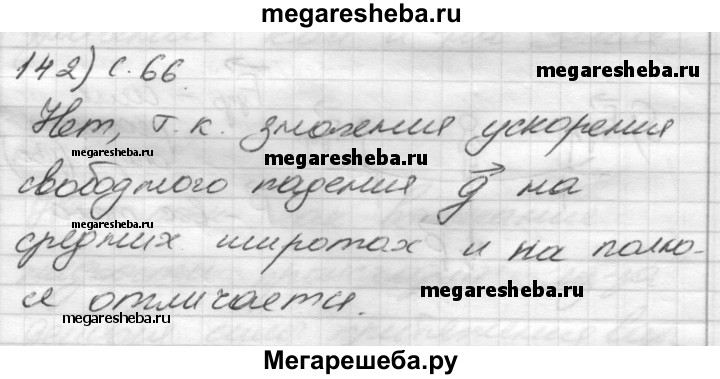 megaresheba.ru
142) с. 66.
megaresheba.ru
Нет, т.к. значения ускорения
megaresheba.ru
megaresheba.ru
свободного падения g на
megaresheba.ru
средних широтах и на полю-
се отличается.
megaresheba.ru
megaresheba.ru
Мегарешеба.ру